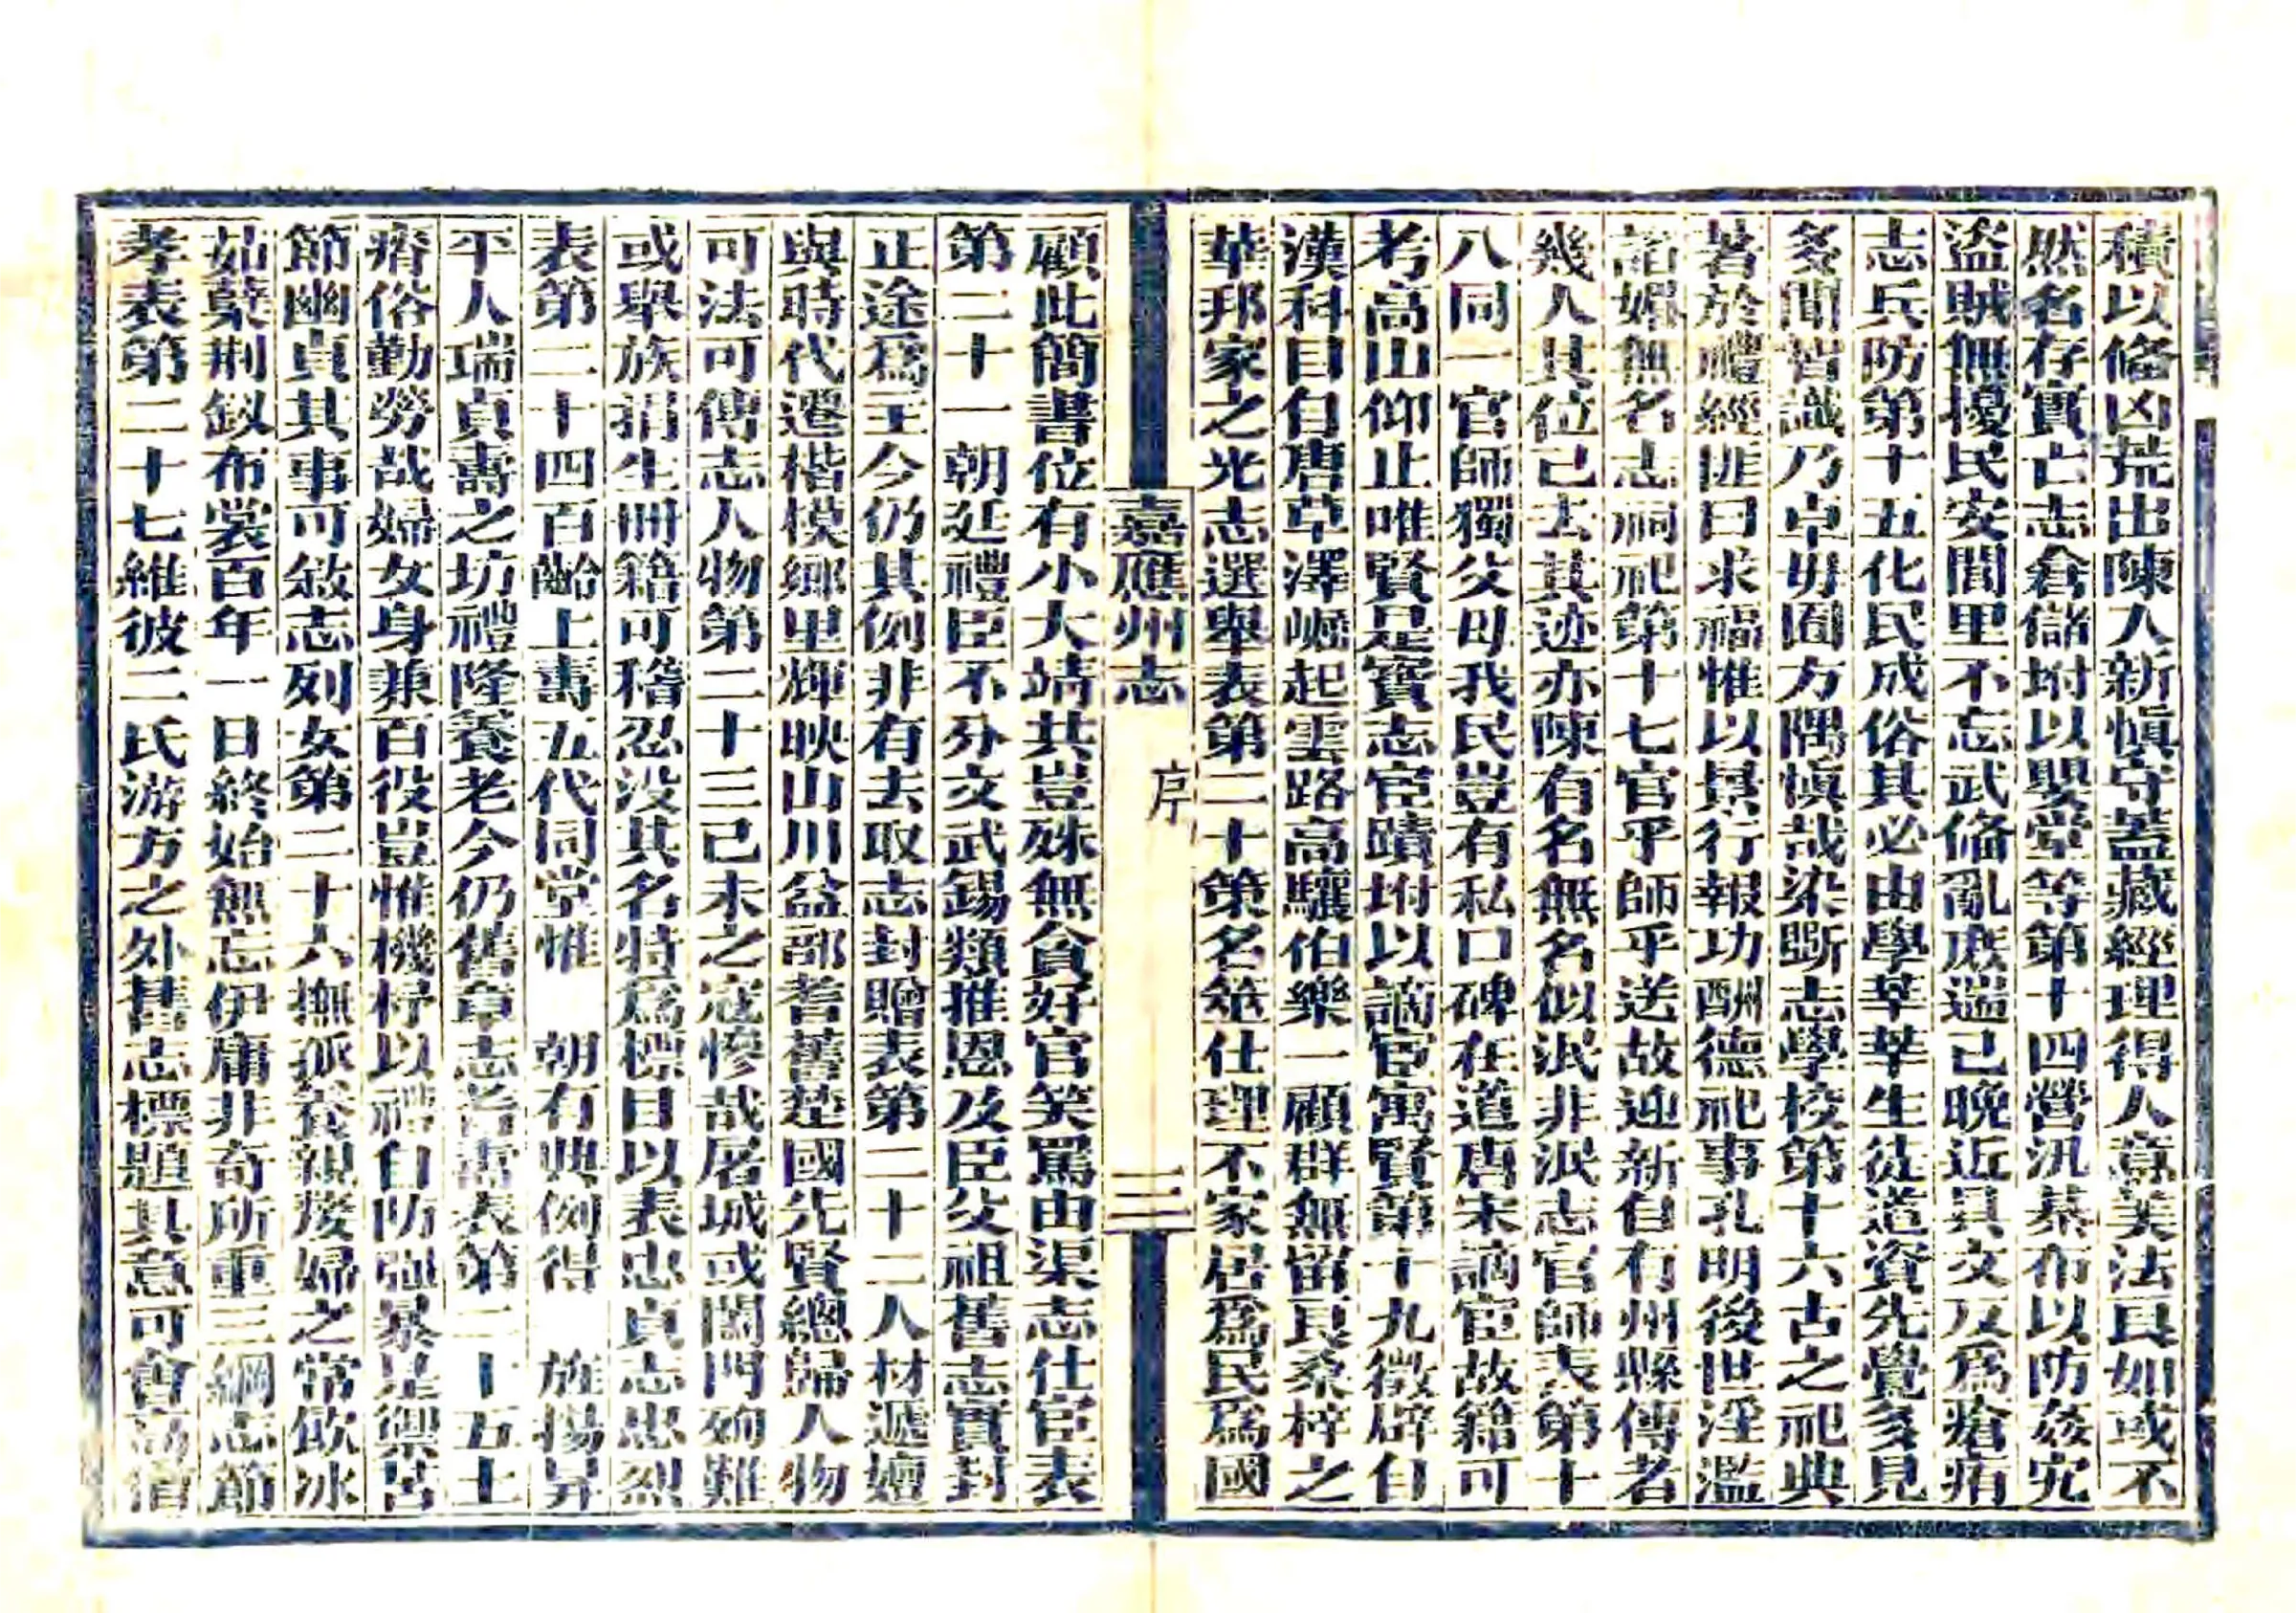 積以備凶荒出陳入新慎守蓋藏經理得人意美法良如或不
然名存實亡志倉儲坿以嬰堂等第十四營汛棊布以防姦宄
盜賊無擾民安閭里不忘武備亂庶遄已晚近具文反爲瘡痏
志兵防第十五化民成俗其必由學莘莘生徒道資先覺多見
多聞皆識乃卓毋囿方隅慎哉染斲志學校第十六古之祀典
著於禮經匪曰求福惟以景行報功酬德祀事孔明後世淫濫
諂媚無名志祠祀第十七官乎師乎送故迎新自有州縣傳者
幾人其位已去其迹亦陳有名無名似泯非泯志官師表第十
八同一官師獨父母我民豈有私口碑在道唐宋謫宦故籍可
考高山仰止唯賢是寶志宦蹟坿以謫宦寓賢第十九徵辟自
漢科目自唐草澤崛起雲路高驤伯樂一顧群無留良桑梓之
華邦家之光志選舉表第二十策名筮仕理不家居爲民爲國
嘉應州志
序
三
顧此簡書位有小大靖共豈殊無貪好官笑罵由渠志仕宦表
第二十一朝廷禮臣不分文武錫類推恩及臣父祖舊志實封
正途爲主今仍其例非有去取志封贈表第二十二人材遞嬗
與時代遷楷模鄉里輝映山川益部耆舊楚國先賢總歸人物
可法可傳志人物第二十三己未之寇慘哉屠城或闔門殉難
或舉族捐生冊籍可稽忍沒其名特爲標目以表忠貞志忠烈
表第二十四百齡上壽五代同堂惟　朝有典例得　旌揚昇
平人瑞貞壽之坊禮隆養老今仍舊章志耆壽表第二十五土
瘠俗勤勞哉婦女身兼百役豈惟機杼以禮自防強暴是禦苦
節幽貞其事可敘志列女第二十六撫孤養親嫠婦之常飲冰
茹蘗荆釵布裳百年一日終始無忘伊庸非奇所重三綱志節
孝表第二十七維彼二氏游方之外舊志標題其意可會高僧